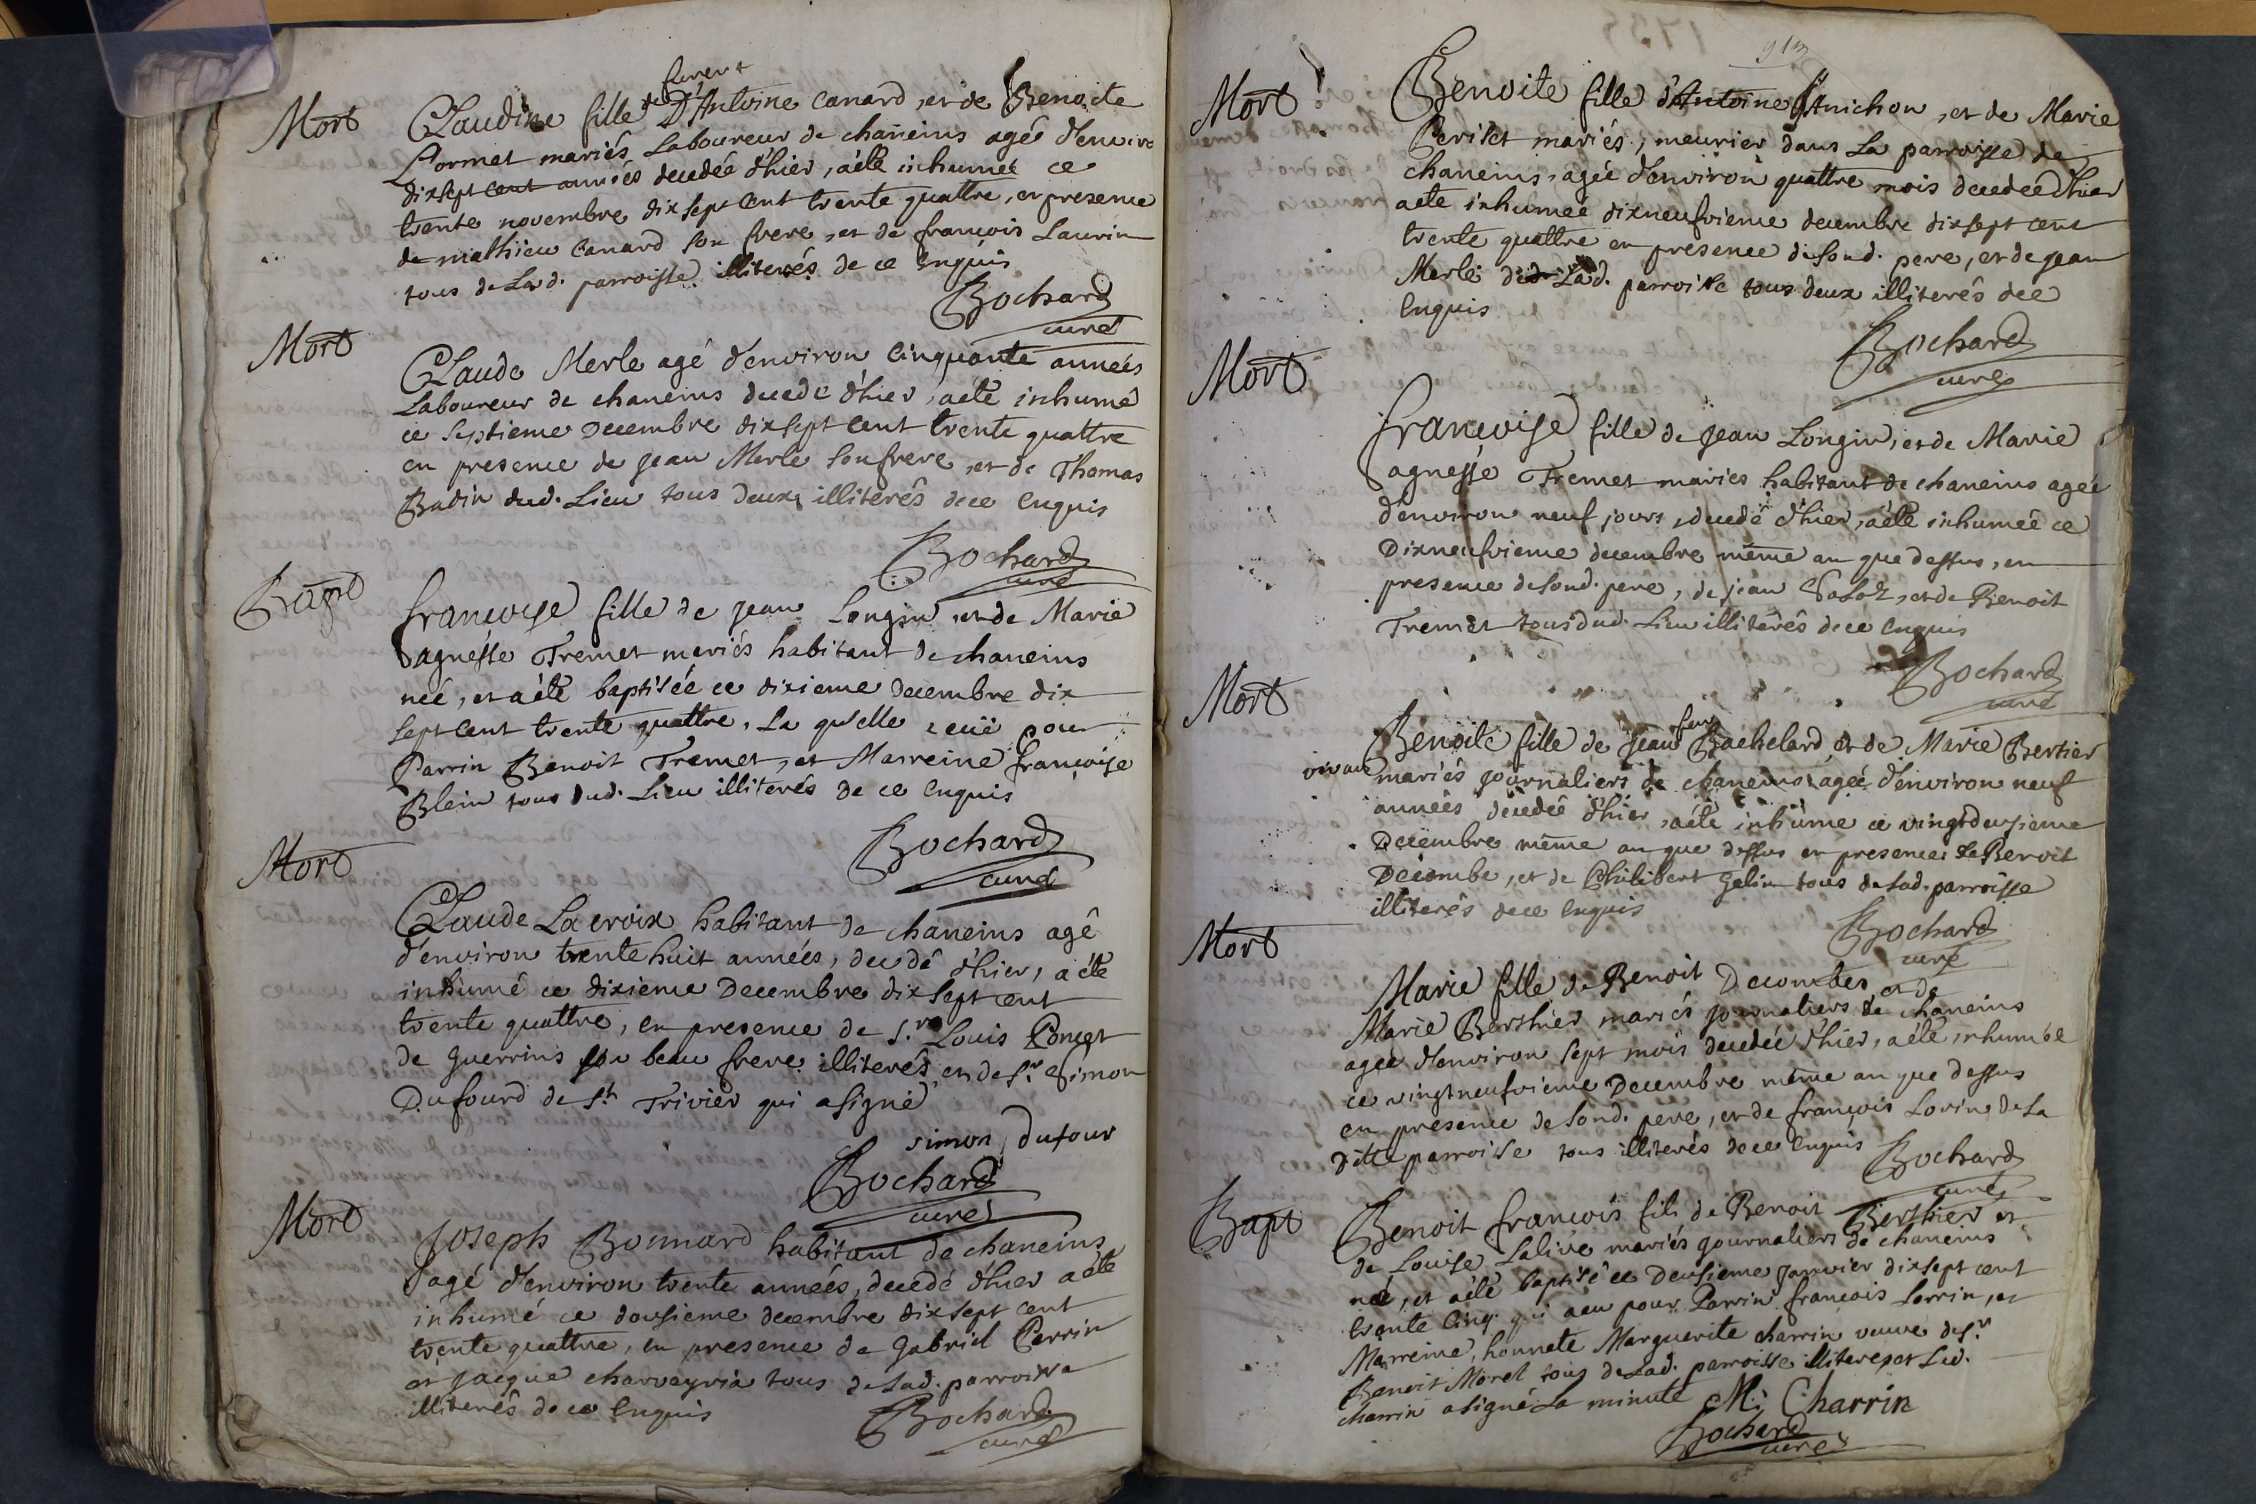 Mort
furent
Claudine fille de D'Antoine Canard, et de Benoite
Cormet mariés, Laboureur de chaneins agée d'enviro
dixsept cent années decedée d'hier, aété inhumeé ce
trente novembre dix sept cent trente quattre, en presence
de mathieu Canard son frere, et de francois Laurin
tous de Lad. parroisse illiterés de ce Enquis
Bochard
curé
Mort
Claude Merle agé d'environ Cinquante années
Laboureur de chaneins decedé d'hier, aété inhumé
ce septieme Decembre dixsept Cent trente quattre
en presence de Jean Merle son frere, et de Thomas
Badin dud. Lieu tous Deux illiterés dece Enquis
Bochard
curé
Bapt
francoise fille de jean Longin, et de Marie
agnesse Tremet mariés habitant de chaneins
neé, et aété baptisée ce dixieme Decembre dix
sept Cent trente quattre, La qu'elle a eüe pour
Parrin Benoit Tremet, et Marreine françoise
Blein tous dud. Lieu illiterés de ce Enquis
Bochard
curé
Mort
Claude Lacroix habitant de chaneins agé
d'environ trente huit années, decedé d'hier, a été
inhumé ce dixieme Decembre dix sept cent
trente quattre, en presence de s.r Louis Poncet
de Guerrins son beau frere illiterés, et de s.r Simon
Dufourd de st Trivier qui asigné
simon dufour
Bochard
curé
Mort
Joseph Bonnard habitant de chaneins
agé d'environ trente années, decedé d'hier aété
inhumé ce dousieme decembre dix sept cent
trente quattre, en presence de Gabriel Perrin
et Jacque charveyria tous de Lad. parroisse
illiterés de ce Enquis
Bochard
curé
Mort
Benoite fille d'Antoine Anichon, et de Marie
Periset mariés, meunier dans La parroisse de
chaneins, agée d'environ quattre mois decedeé d'hier
aété inhumeé dixneufvieme decembre dixsept cent
trente quattre en presence de sond. pere, et de jean
Merle de Lad. parroisse tous deux illiterés dece
Enquis
Bochard
curé
Mort
francoise fille de jean Longin, et de Marie
agnesse Tremet mariés habitant de chaneins ageé
d'environ neuf jours, decedé d'hier, aété inhumeé ce
Dixneufvieme decembre même an que dessus, en
presence de sond. pere, de jean et de Benoit
Tremet tous dud. Lieu illiterés dece Enquis
Bochard
curé
Mort
feu
Benoite fille de Jean Bachelard, et de Marie Bertier
vivant mariés journaliers de chaneins ageé d'environ neuf
années decedeé d'hier, aété inhumé ce vingtdeusieme
Decembre même an que dessus en presence de Benoit
Decombe, et de Philibert Gelin tous de Lad. parroisse
illiterés dece Enquis
Bochard
curé
Mort
Marie fille de Benoit Decombes et de
Marie Berthier mariés journaliers de chaneins
agée d'environ sept mois decedée d'hier, aété inhumée
ce vingtneufvieme Decembre même an que dessus
en presence de sond. pere, et de françois Lorin de La
Ditte parroisse tous illiterés dece Enquis
Bochard
curé
Bapt
Benoit francois fils de Benoit Berthier et
de Louise Lalive mariés journaliers de chaneins
né, et aété baptisé ce Deusieme Janvier dixsept cent
trente Cinq qui aeu pour Parrin françois Lorrin, et
Marreine, honnete Marguerite charrin veuve de s.r
Benoit Morel tous de Lad. parroisse illiterés et Lad.
charrin asigné La minute M: Charrin
Bochard
curé